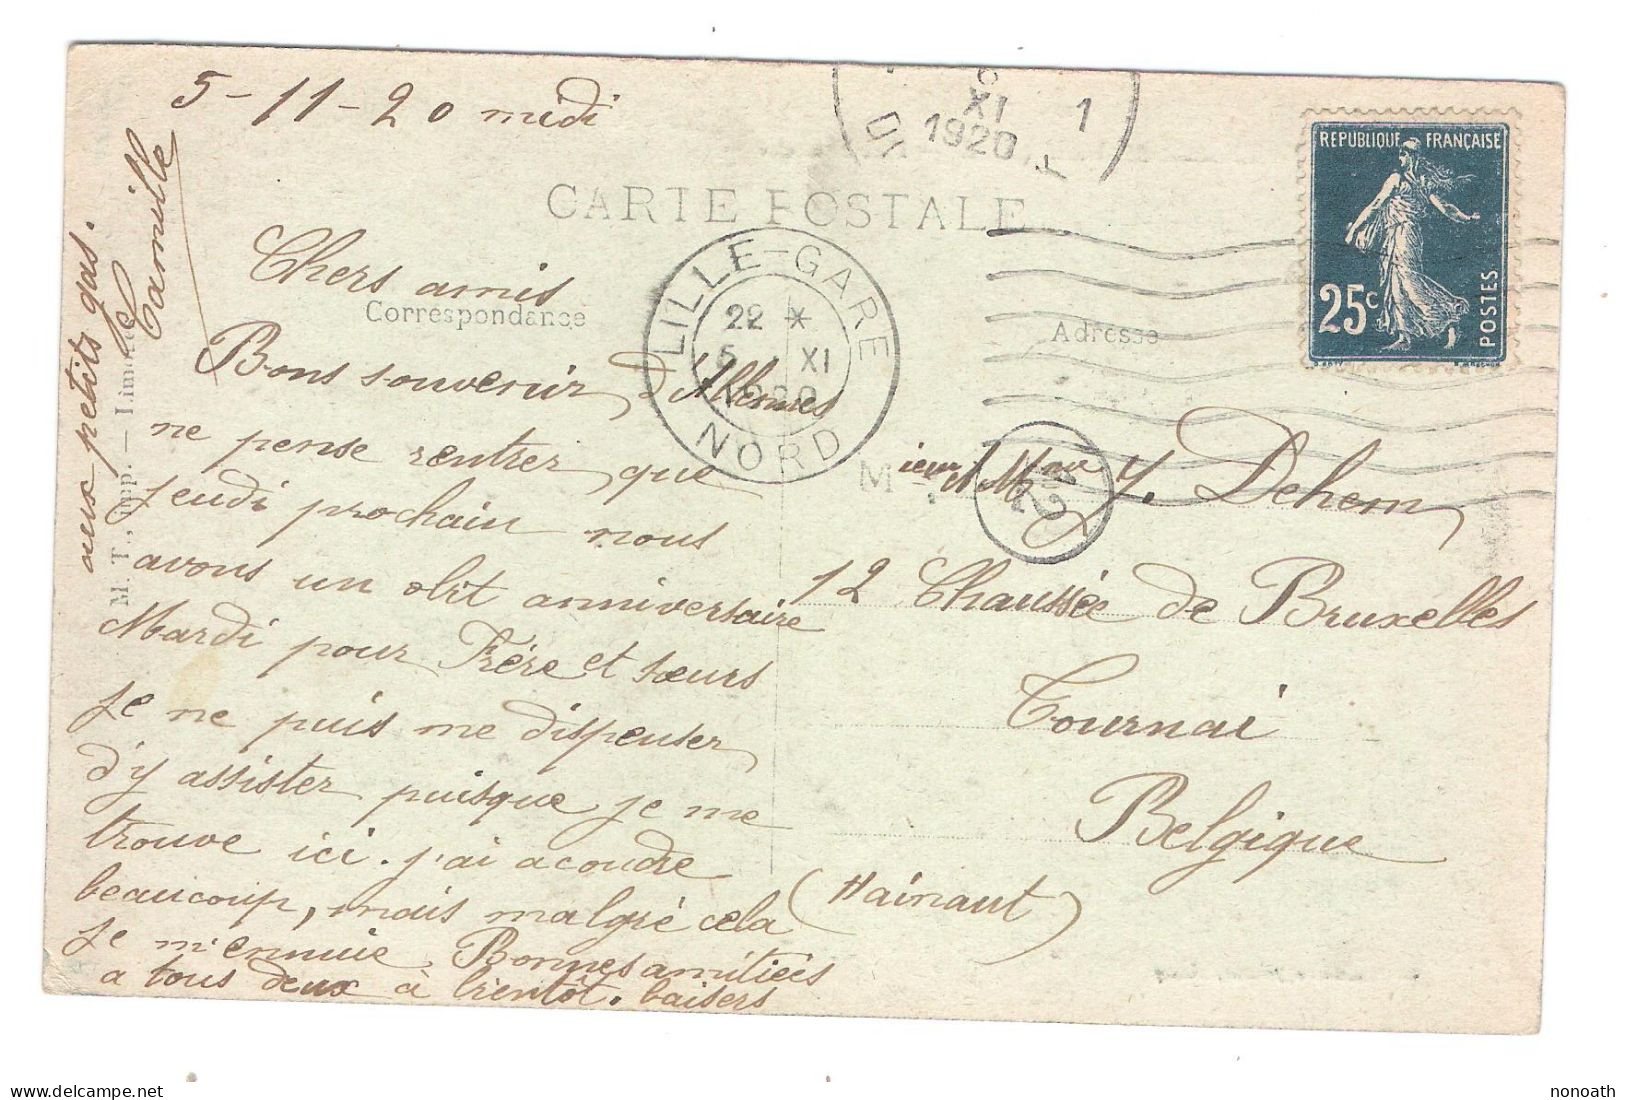 5-11-20 midi
XI
1920
1
CARTE POSTALE
LILLE-GARE
22 *
5 XI
1920
NORD
REPUBLIQUE FRANÇAISE
25c
POSTES
Correspondance
Adresse
Chers amis
Bons souvenir, d'Allennes
ne pense rentrer que
jeudi prochain nous
avons un obit anniversaire
Mardi pour Frère et sœurs
je ne puis me dispenser
d'y assister puisque je me
trouve ici. j'ai a coudre
beaucoup, mais malgré cela
je m'ennuie. Bonnes amitiées
a tous deux à bientôt. baisers
aux petits gas.
Camille
M. T., imp. — Limoges
M ieur et Mme Y. Dehem
12 Chaussée de Bruxelles
Tournai
Belgique
(Hainaut)
nonoath